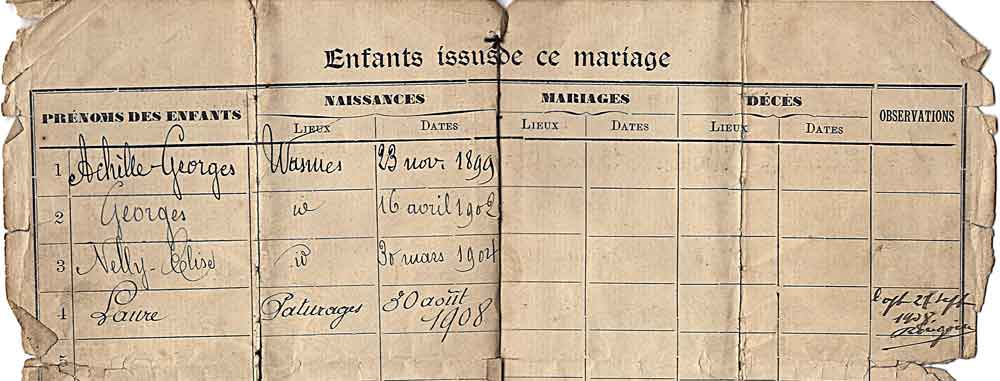 Enfants issus de ce mariage
PRÉNOMS DES ENFANTS NAISSANCES MARIAGES DÉCÈS OBSERVATIONS
LIEUX DATES LIEUX DATES LIEUX DATES
1 Achille-Georges Wasmes 23 nov. 1899
2 Georges id 16 avril 1902
3 Nelly-Elise id 30 mars 1904
4 Laure Paturages 30 août 1908
sept
1908
5